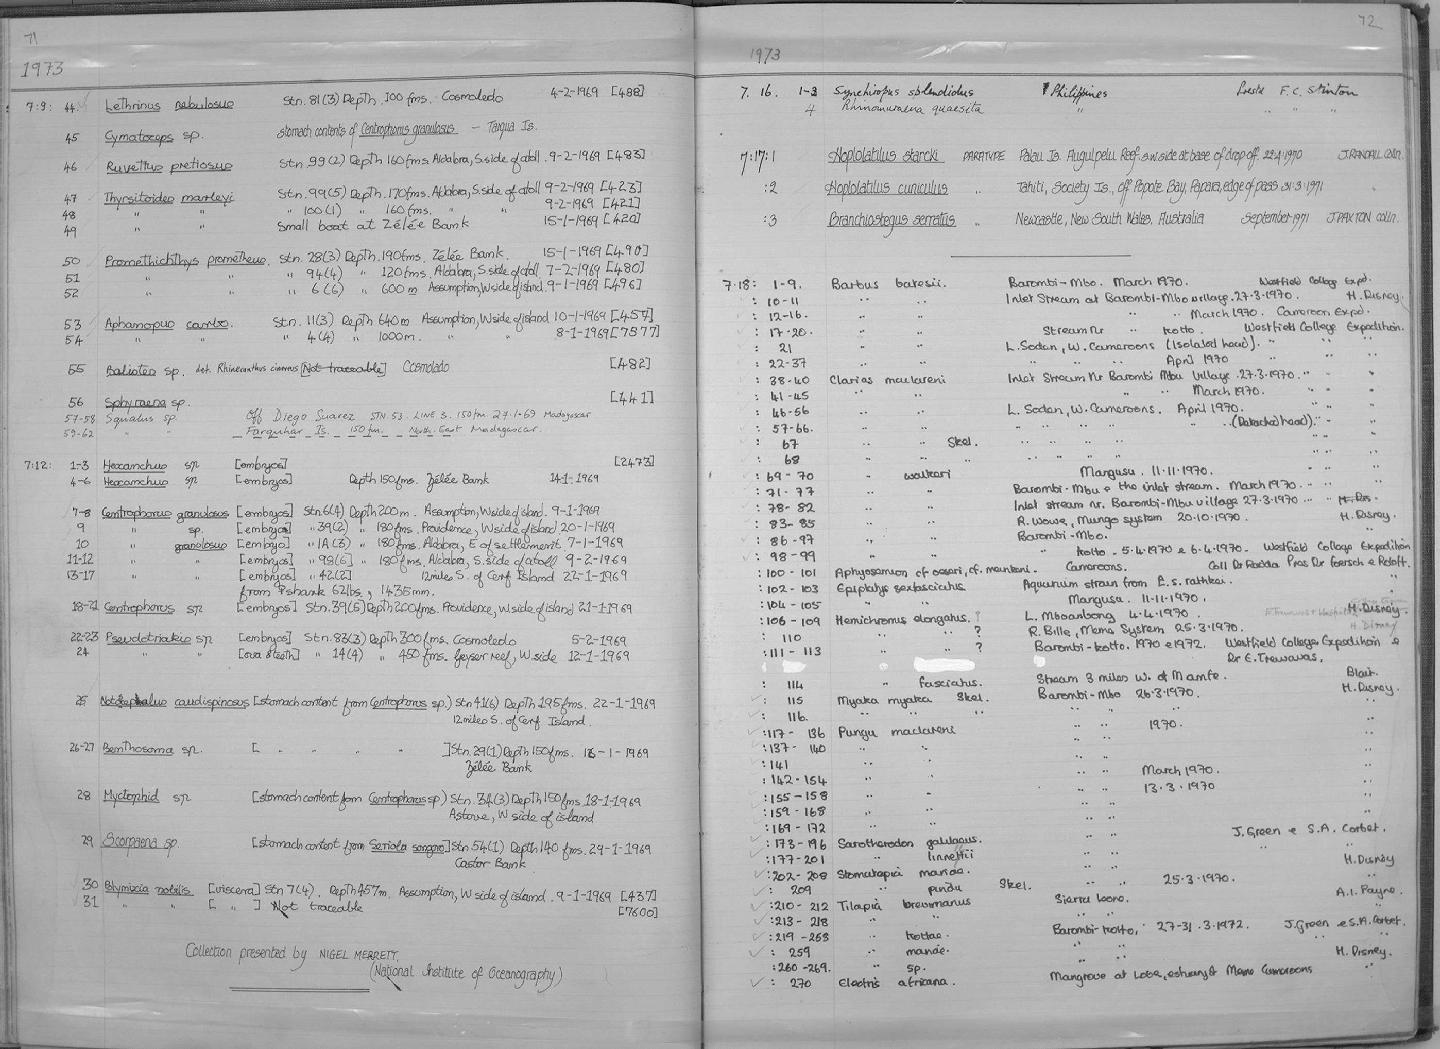 71
1973
7:9: 44. Lethrinus nebulosus Stn. 81(3) Depth 100 fms. Cosmoledo 4-2-1969 [488]
45 Cymatoceps sp. stomach contents of Centrophorus granulosus —
46 Ruvettus pretiosus Stn. 99(2) Depth 160 fms. Aldabra, S.side of atoll. 9-2-1969 [483]
47 Thyrsitoides marleyi Stn. 99(5) Depth 170 fms. Aldabra, S.side of atoll 9-2-1969 [423]
48 " " " 100(1) " 160 fms. " " 9-2-1969 [421]
49 " " Small boat at Zélée Bank 15-1-1969 [420]
50 Promethichthys prometheus. Stn. 28(3) Depth 190 fms. Zélée Bank. 15-1-1969 [490]
51 " " " 94(4) " 120 fms. Aldabra, S.side of atoll 7-2-1969 [480]
52 " " " 6(6) " 600 m Assumption, W side of island. 9-1-1969 [496]
53 Aphanopus carbo. Stn. 11(3) Depth 640m Assumption, W side of island 10-1-1969 [457]
54 " " " 4(4) " 1000m. " " 8-1-1969 [7577]
55 Balistes sp. det. Rhinecanthus cinereus [Not traceable] Cosmoledo [482]
56 Sphyraena sp. [441]
57-58 Squalus sp. Off Diego Suarez STN. 53. LINE 3. 150 fm. 27-1-69 Madagascar
59-62 " Farquhar Is. 150 fm. North-East Madagascar.
7:12: 1-3 Hexanchus sp [embryos] [2473]
4-6 Hexanchus sp [embryos] Depth 150 fms. Zélée Bank 14-1-1969
7-8 Centrophorus granulosus [embryos] Stn. 6(4) Depth 200 m. Assumption, W side of island. 9-1-1969
9 " sp. [embryos] " 39(2) " 180 fms. Providence, W side of island 20-1-1969
10 " granulosus [embryo] " 1A(3) " 180 fms. Aldabra, E of settlement 7-1-1969
11-12 " " [embryos] " 98(6) " 180 fms. Aldabra, S.side of atoll 9-2-1969
13-17 " " [embryos] " 42(2) 12 miles S. of Cerf Island 22-1-1969
from ♀ shank 62 lbs, 1435 mm.
18-21 Centrophorus sp [embryos] Stn. 39(5) Depth 200 fms. Providence, W side of island 21-1-1969
22-23 Pseudotriakis sp [embryos] Stn. 83(3) Depth 300 fms. Cosmoledo 5-2-1969
24 " " [ova & teeth] " 14(4) " 450 fms. Geyser reef, W side 12-1-1969
25 caudispinosus [stomach content from Centrophorus sp.] Stn 41(6) Depth 195 fms. 22-1-1969
12 miles S. of Cerf Island.
26-27 Benthosoma sp. [ " " " " ] Stn. 29(1) Depth 150 fms. 16-1-1969
Zélée Bank
28 Myctophid sp [stomach content from Centrophorus sp.] Stn. 34(3) Depth 150 fms 18-1-1969
Astove, W side of island
29 Scorpaena sp. [stomach content from Seriola songoro] Stn 54(1) Depth 140 fms. 29-1-1969
Castor Bank
30 Polymixia nobilis [viscera] Stn 7(4). Depth 457m. Assumption, W side of island. 9-1-1969 [437]
31 " " [ " ] Not traceable [7600]
Collection presented by NIGEL MERRETT,
(National Institute of Oceanography)
72
1973
7. 16. 1-3 Synchiropus splendidus Philippines Presd F.C. Stinton
4 Rhinomuraena quaesita " " " "
7:17:1 Hoplolatilus starcki PARATYPE Palau Is. Augulpelu Reef. sw side at base of drop off. 22.4.1970 J. RANDALL colln.
:2 Hoplolatilus cuniculus " Tahiti, Society Is., off Popote Bay, Papara, edge of pass 31.3.1971 "
:3 Branchiostegus serratus " Newcastle, New South Wales, Australia September 1971 J. PAXTON colln.
7:18: 1-9. Barbus batesii. Barombi-Mbo. March 1970. Westfield College Expd.
: 10-11 " " Inlet Stream at Barombi-Mbo village. 27.3.1970. H. Disney.
: 12-16. " " " " March 1970. Cameroon Expd.
: 17-20. " " Stream nr " Kotto. Westfield College Expedition.
: 21 " " L. Soden, W. Cameroons (Isolated head). " " "
: 22-37 " " " " " April 1970 " "
: 38-40 Clarias maclareni Inlet Stream Nr Barombi Mbu Village. 27.3.1970. " " "
: 41-45 " " " " March 1970. " "
: 46-56 " " L. Soden, W. Cameroons. April 1970. " "
: 57-66. " " " " " " " (Detached head). " "
: 67 " " Skel. " " "
: 68 " " " " " "
: 69-70 " walkeri Mangusu. 11.11.1970. " "
: 71-77 " " Barombi-Mbu & the inlet stream. March 1970. " "
: 78-82 " " Inlet stream nr. Barombi-Mbu village 27.3.1970 " H. Dis.
: 83-85 " " R. Wowe, Mungo system 20.10.1970. H. Disney.
: 86-97 " " Barombi-Mbo.
: 98-99 " " " Kotto. 5.4.1970 & 6.4.1970. Westfield College Expedition
: 100-101 Aphyosemion cf oeseri, cf. Cameroons. Coll Dr Radda Pres Dr Foersch & Roloff.
: 102-103 Epiplatys sexfasciatus Aquarium strain from E.S. rathkei.
: 104-105 " " Mangusu. 11.11.1970.
: 106-109 Hemichromis elongatus. ? L. Mboandong 4.4.1970. H. Disney.
: 110 " " ? R. Bille, Meme System 25.3.1970. H. Disney
: 111-113 " " ? Barombi-Kotto. 1970 & 1972. Westfield College Expedition &
Dr E. Trewavas.
: 114 " fasciatus. Stream 3 miles W. of Mamfe. Blair.
: 115 Myaka myaka Skel. Barombi-Mbo 26.3.1970. H. Disney.
: 116. " " " " " " "
: 117-136 Pungu maclareni " " 1970. "
: 137-140 " " " " "
: 141 " " " " "
: 142-154 " " " " March 1970. "
: 155-158 " " " " 13.3.1970 "
: 159-168 " " " " "
: 169-172 " " " " J. Green & S.A. Corbet.
: 173-196 Sarotherodon galilaeus. " " " "
: 177-201 " linnellii " " H. Disney
: 202-208 Stomatepia mariae. " " "
: 209 " pindu Skel. " " 25.3.1970. "
: 210-212 Tilapia brevimanus Sierra Leone. A.I. Payne.
: 213-218 " " " " "
: 219-258 " kottae. Barombi-Kotto, 27-31.3.1972. J. Green & S.A. Corbet.
: 259 " mariae. " " " "
: 260-269. " sp. " " H. Disney.
: 270 Eleotris africana. Mangrove at Lobe, estuary of Meme Cameroons "